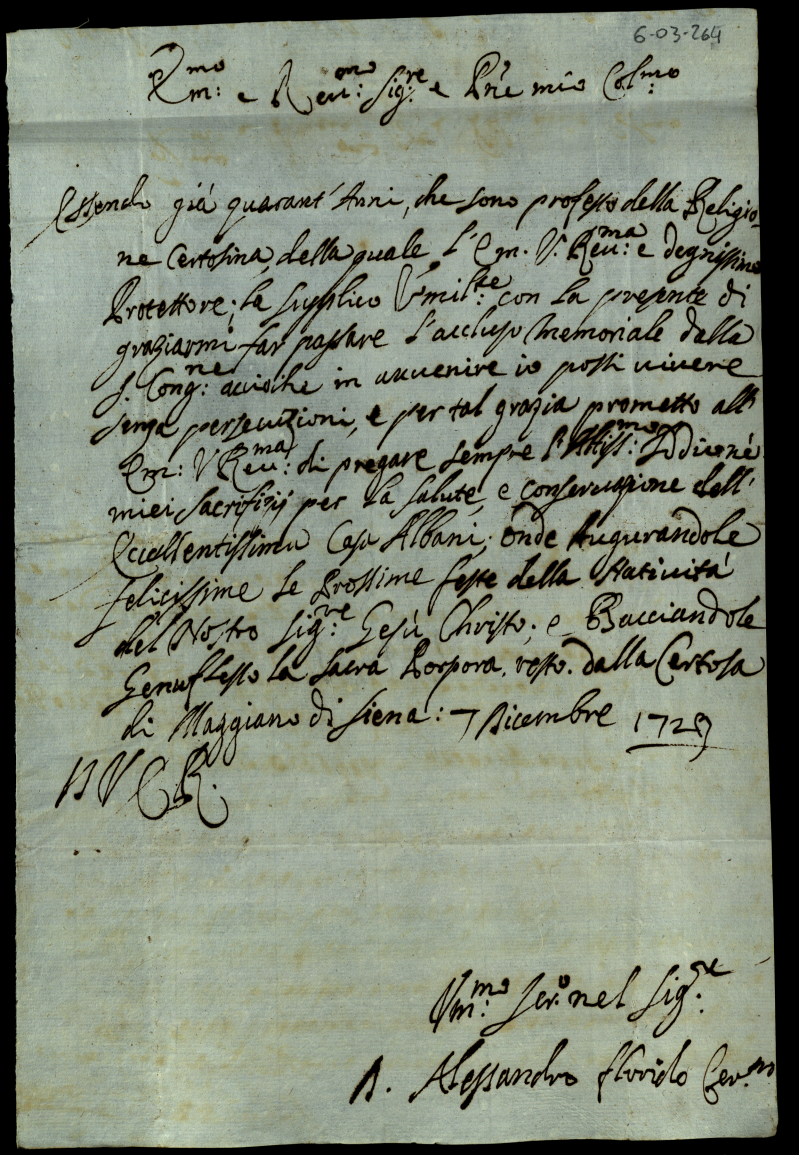 6-03-264
Em:mo e Reu:mo Sig:re e Pne mio Col:mo
Essendo già quarant'Anni, che sono professo della Religio-
ne Certosina, della quale l'Em. V. Reu:ma e degnissimo
Protettore; la supplico Umil:te con la presente di
graziarmi far passare l'accluso Memoriale dalla
S. Cong:ne acciòche in auuenire io possi uiuere
senza persecuzioni, e per tal grazia prometto all'
Em: V Reu:ma di pregare sempre l'Altiss:mo Iddio nè
miei sacrifizij per la salute, e conseruazione dell'
Eccellentissima Casa Albani; onde Augurandole
felicissime le Prossime feste della Natiuità
del Nostro Sig:re Gesù Christo; e Bacciandole
Genuflesso la sacra Porpora, resto. dalla Certosa
di Maggiano di Siena: 7 Dicembre 1729
D V E R.
Um:mo Ser:o nel Sig:re
D. Alessandro Florido Cer:no